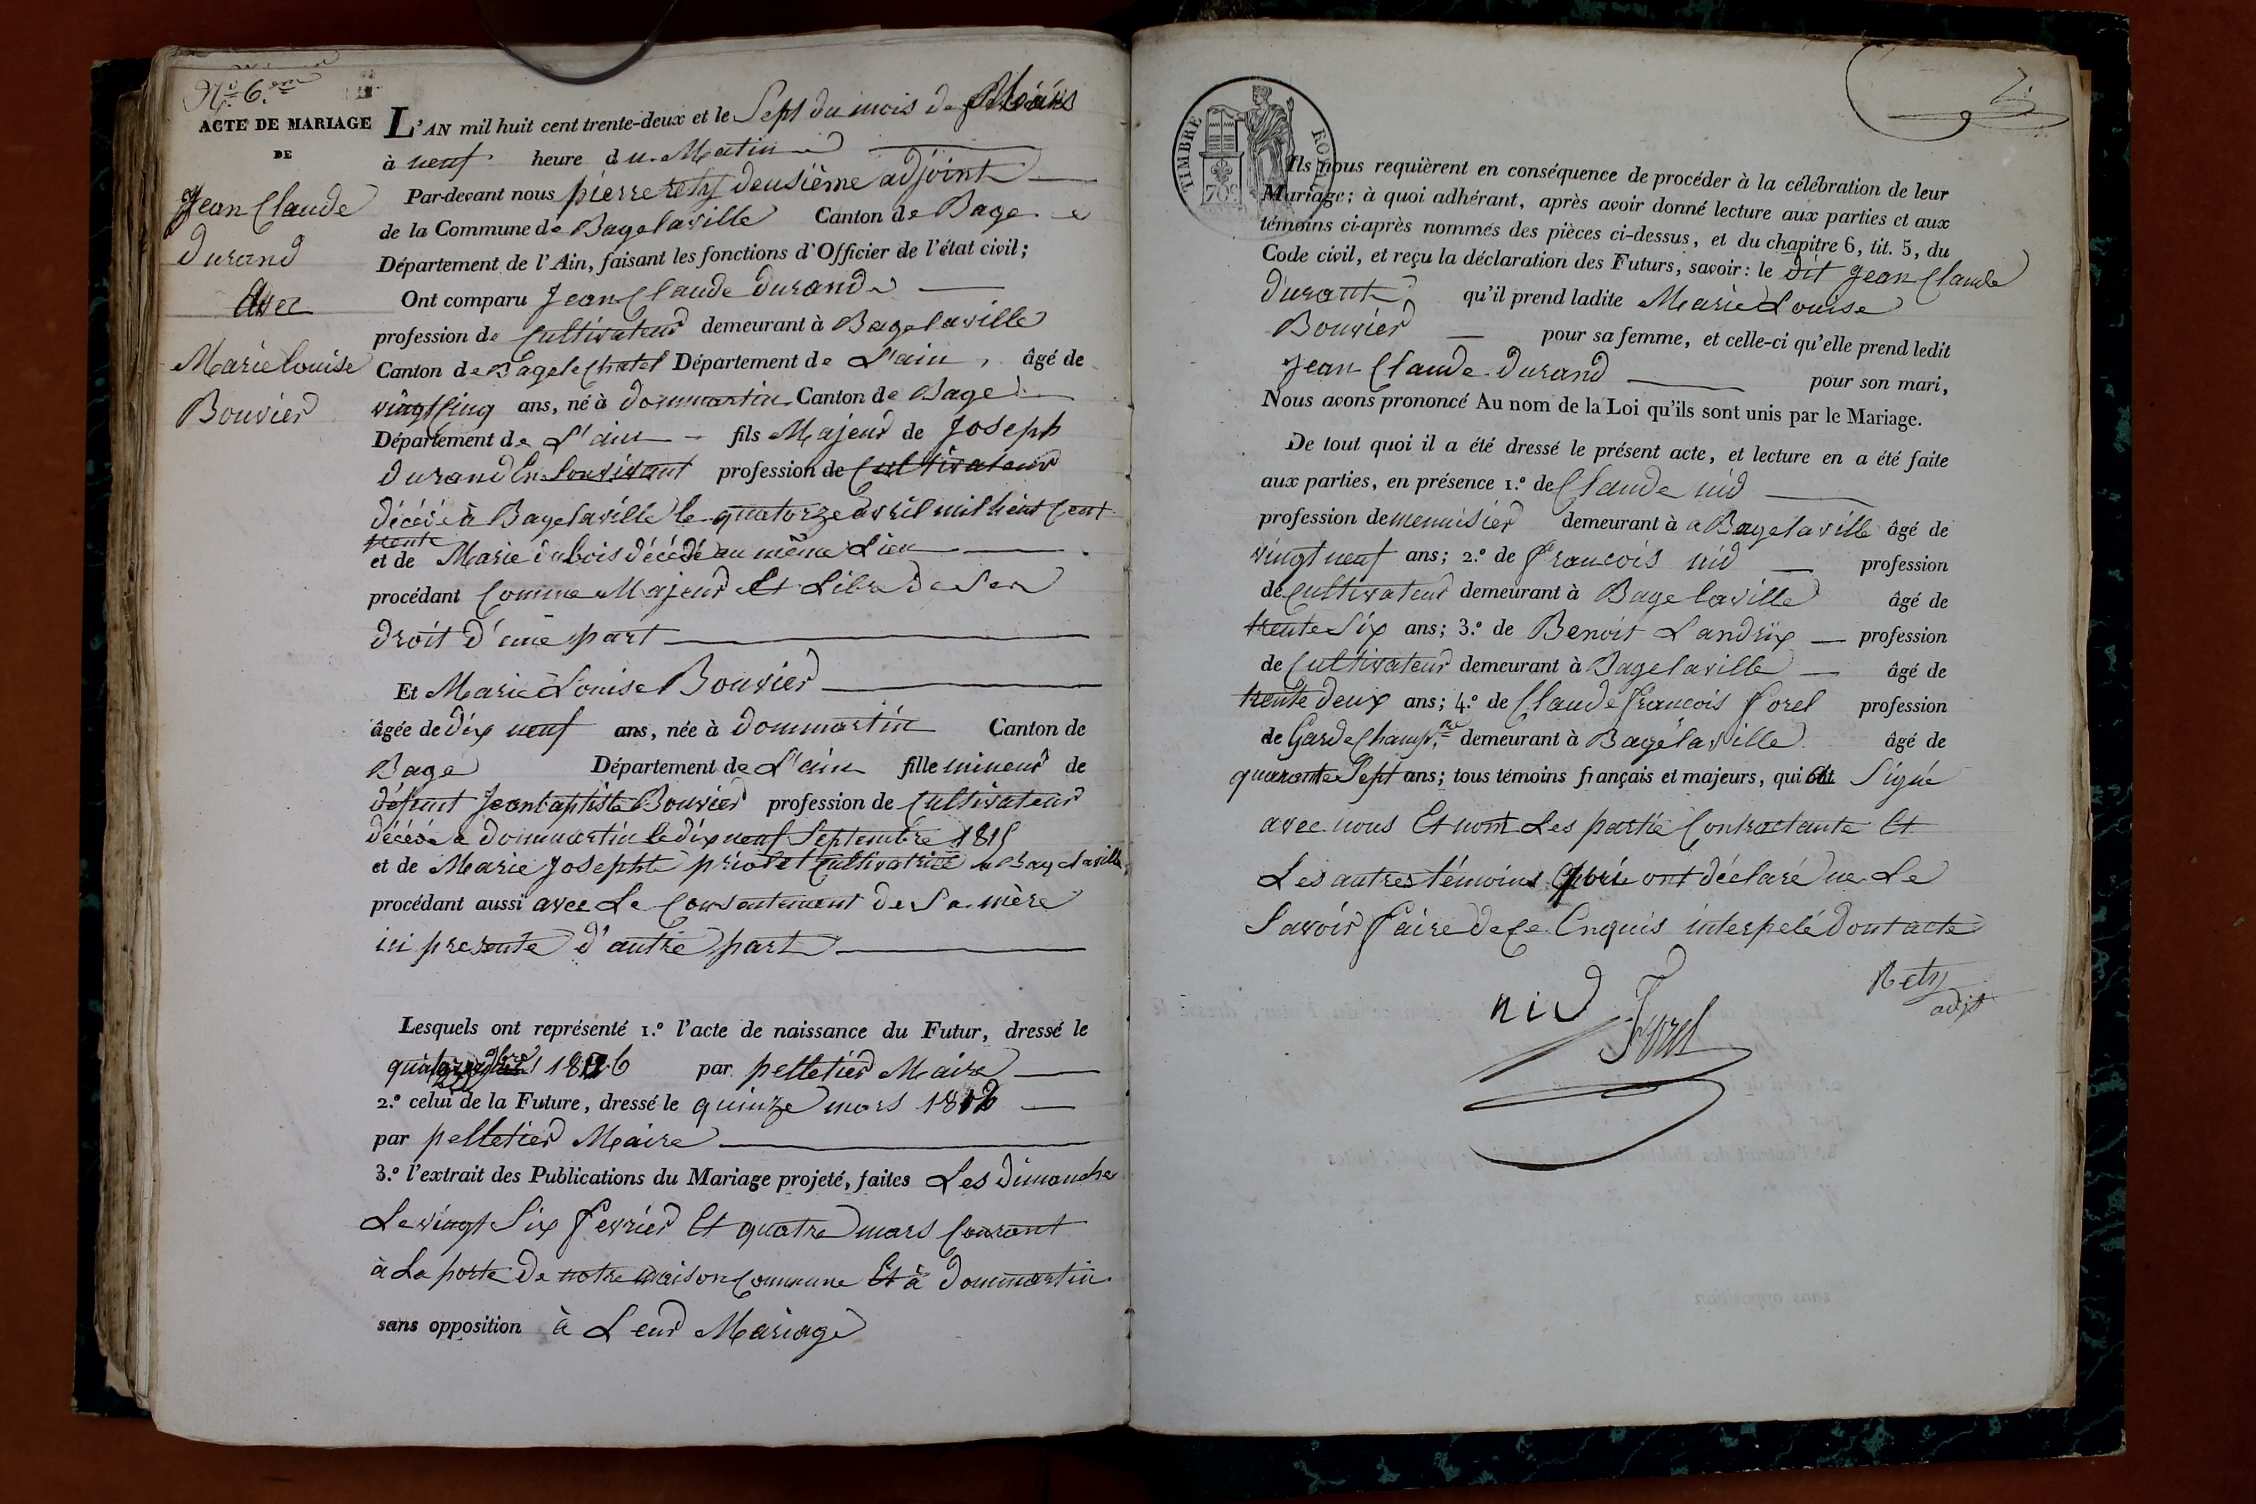 N.º 6.ème
ACTE DE MARIAGE
DE
Jean Claude
Durand
Avec
Marie louise
Bouvier
L'AN mil huit cent trente-deux et le Sept du mois de Mars
à neuf heure du Matin
Par-devant nous pierre rety deusième adjoint
de la Commune de Bagelaville Canton de Bage
Département de l'Ain, faisant les fonctions d'Officier de l'état civil;
Ont comparu Jean Claude durand
profession de Cultivateur demeurant à Bagelaville
Canton de Bagelechatel Département de L'ain, âgé de
vingt Cinq ans, né à dommartin Canton de Bage
Département de L'ain fils Majeur de Joseph
durand En Son vivant profession de Cultivateur
décédé à Bagelaville le quatorze avril mil huit Cent
trente
et de Marie dubois décédé au même Lieu
procédant Comme Majeur et Libre de Ses
droit d'une part
Et Marie Louise Bouvier
âgée de dix neuf ans, née à dommartin Canton de
Bage Département de L'ain fille mineur de
défunt Jean baptiste Bouvier profession de Cultivateur
décédé a dommartin le dix neuf Septembre 1815
et de Marie Josephte priolet Cultivatrice a Bagelaville,
procédant aussi avec Le Consentement de Sa mère
ici presente d'autre part
Lesquels ont représenté 1.º l'acte de naissance du Futur, dressé le
1806 par pelletier Maire
2.º celui de la Future, dressé le quinze mars 1812
par pelletier Maire
3.º l'extrait des Publications du Mariage projeté, faites Les dimanche
Le vingt Six fevrier Et quatre mars Courant
à La porte de notre maison Commune Et à dommartin
sans opposition à Leur Mariage
7.
TIMBRE ROYAL
70 C
Ils nous requièrent en conséquence de procéder à la célébration de leur
Mariage; à quoi adhérant, après avoir donné lecture aux parties et aux
témoins ci-après nommés des pièces ci-dessus, et du chapitre 6, tit. 5, du
Code civil, et reçu la déclaration des Futurs, savoir: le dit Jean Claude
durant, qu'il prend ladite Marie Louise
Bouvier pour sa femme, et celle-ci qu'elle prend ledit
Jean Claude durand pour son mari,
Nous avons prononcé Au nom de la Loi qu'ils sont unis par le Mariage.
De tout quoi il a été dressé le présent acte, et lecture en a été faite
aux parties, en présence 1.º de Claude nid
profession de menuisier demeurant à a Bagelaville âgé de
vingt neuf ans; 2.º de francois nid profession
de Cultivateur demeurant à Bagelaville âgé de
trente Six ans; 3.º de Benoit Landrix profession
de Cultivateur demeurant à Bagelaville âgé de
trente deux ans; 4.º de Claude francois forel profession
de Garde Champ.re demeurant à Bagelaville âgé de
quarante Sept ans; tous témoins français et majeurs, qui ont Signé
avec nous Et nont Les partie Contractante Et
Les autres témoins ont déclaré ne Le
Savoir faire de Ce Enquis interpelé dont acte
nid Forel Rety
adjt